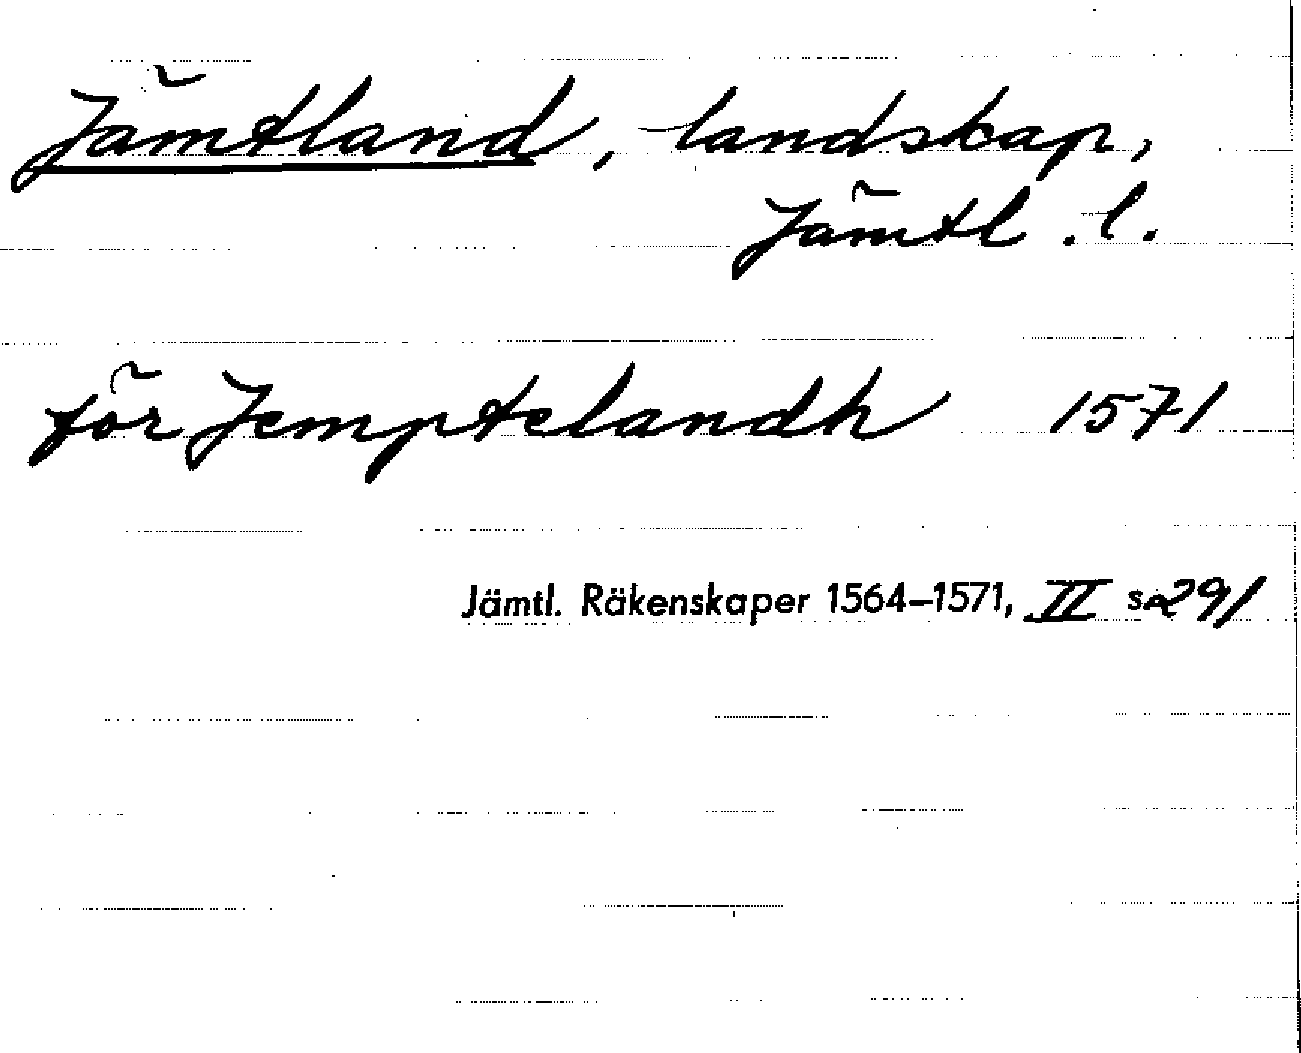 Jämtland, landskap,
Jämtl. l.
för Jemptelandh 1571
Jämtl. Räkenskaper 1564–1571, II s. 291